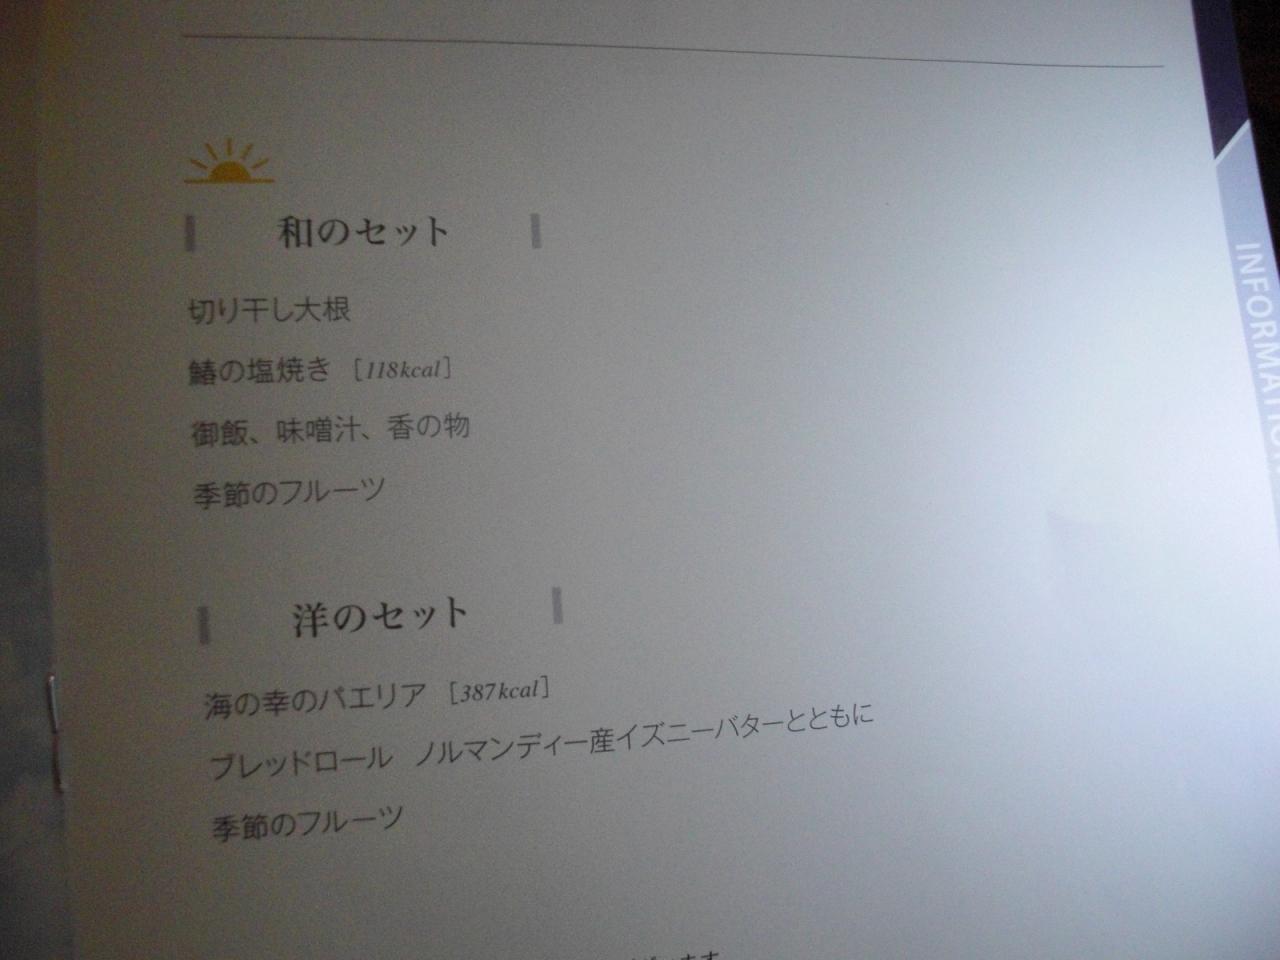 和のセット
切り干し大根
鰆の塩焼き [118kcal]
御飯、味噌汁、香の物
季節のフルーツ
洋のセット
海の幸のパエリア [387kcal]
ブレッドロール ノルマンディー産イズニーバターとともに
季節のフルーツ
INFORMATION